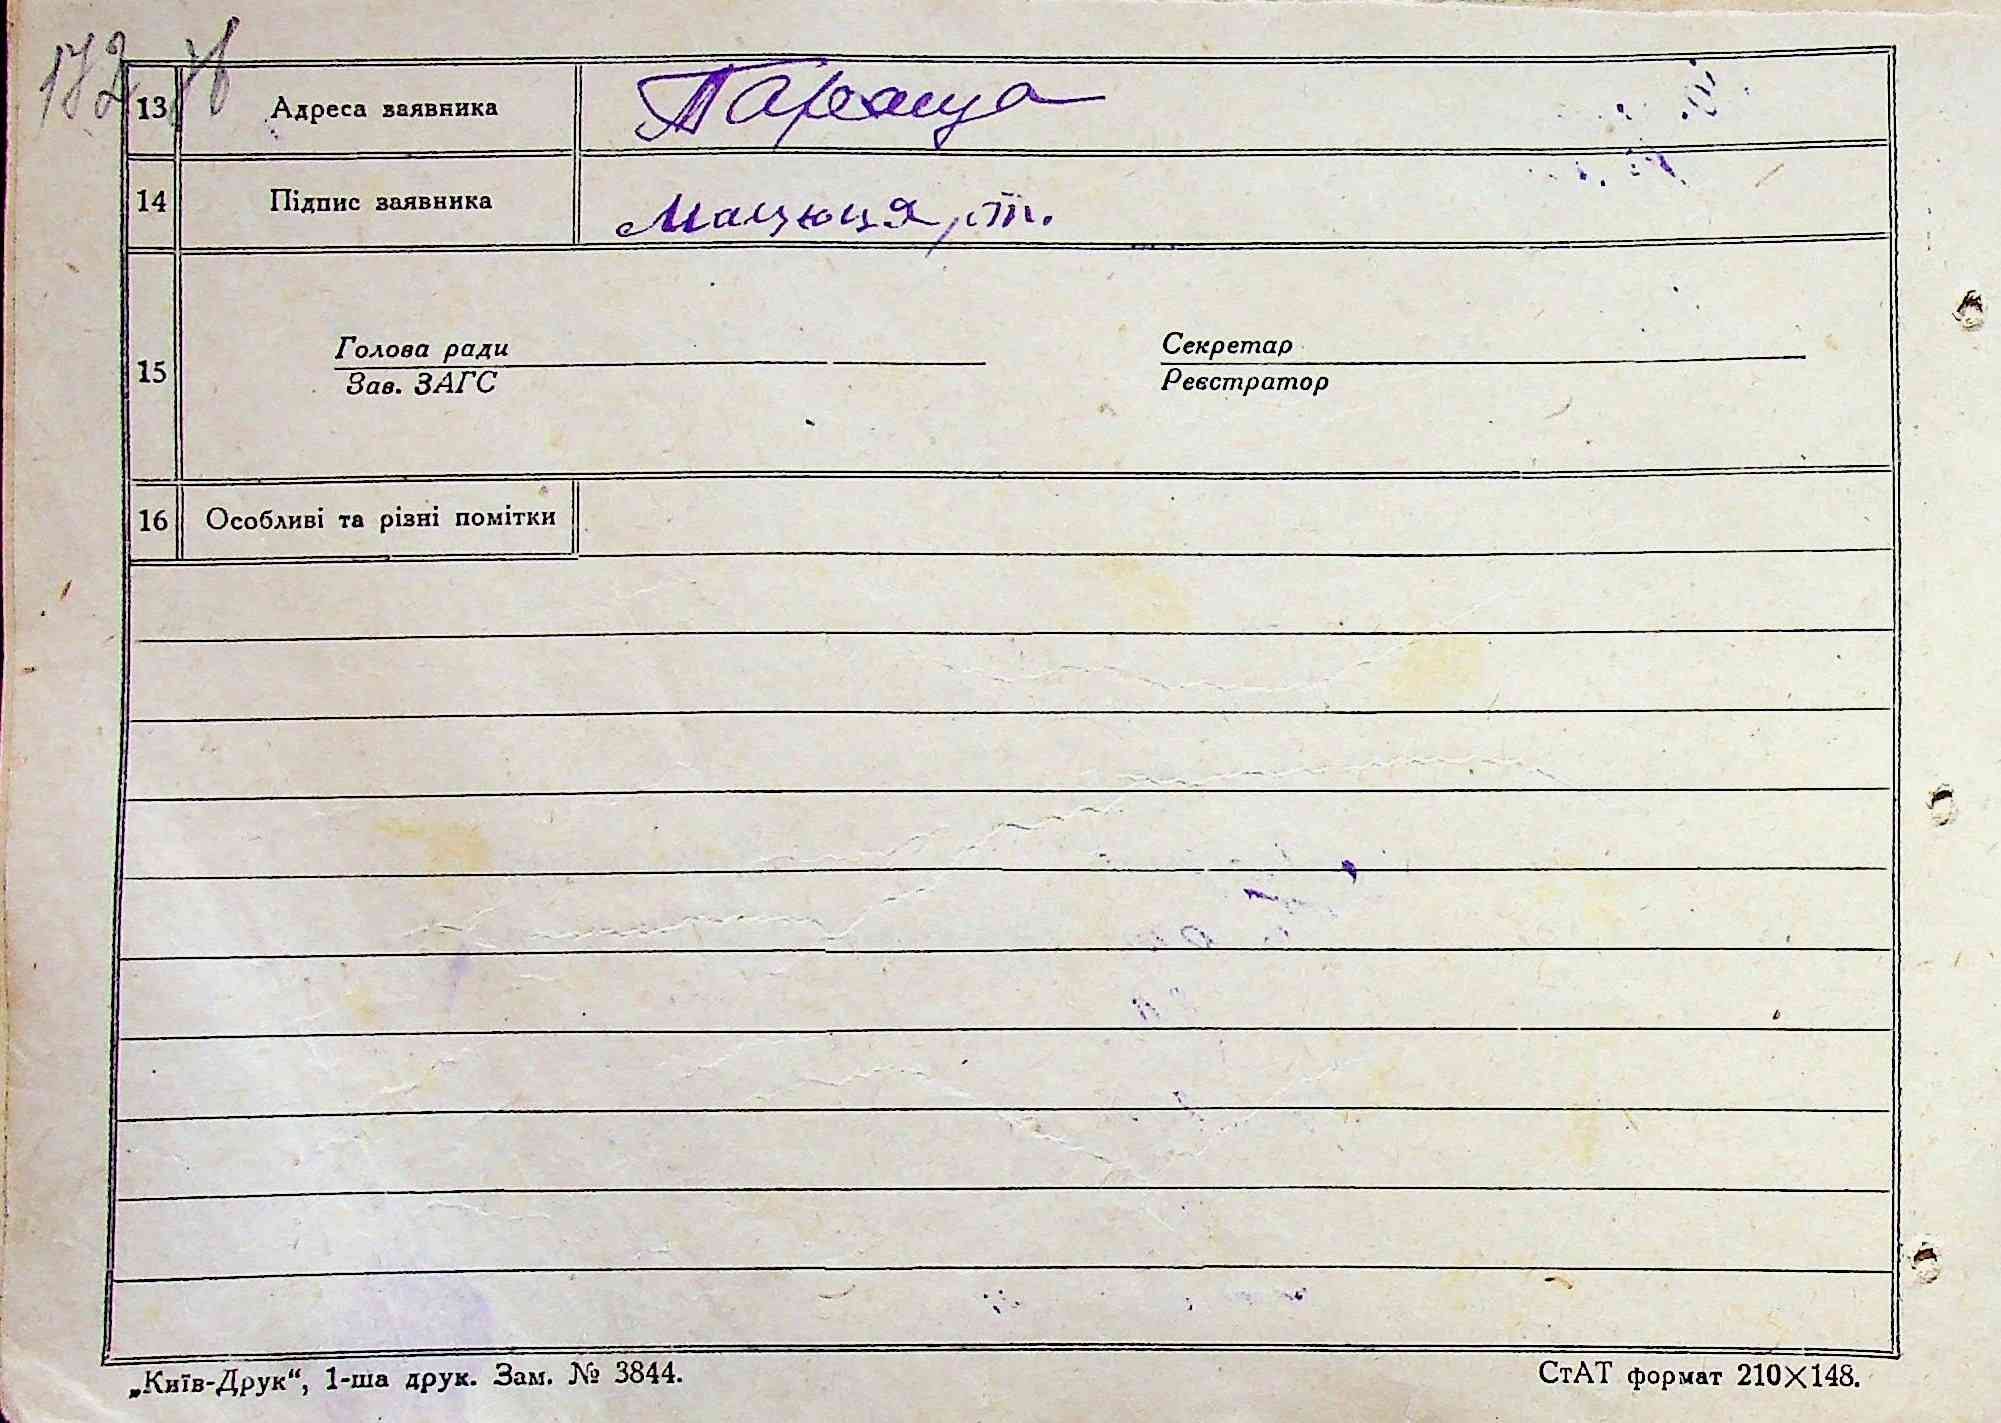 172 зв
13 Адреса заявника Тараща
14 Підпис заявника Мацюця,
15 Голова ради Секретар
Зав. ЗАГС Реєстратор
16 Особливі та різні помітки
„Київ-Друк“, 1-ша друк. Зам. № 3844. СтАТ формат 210×148.